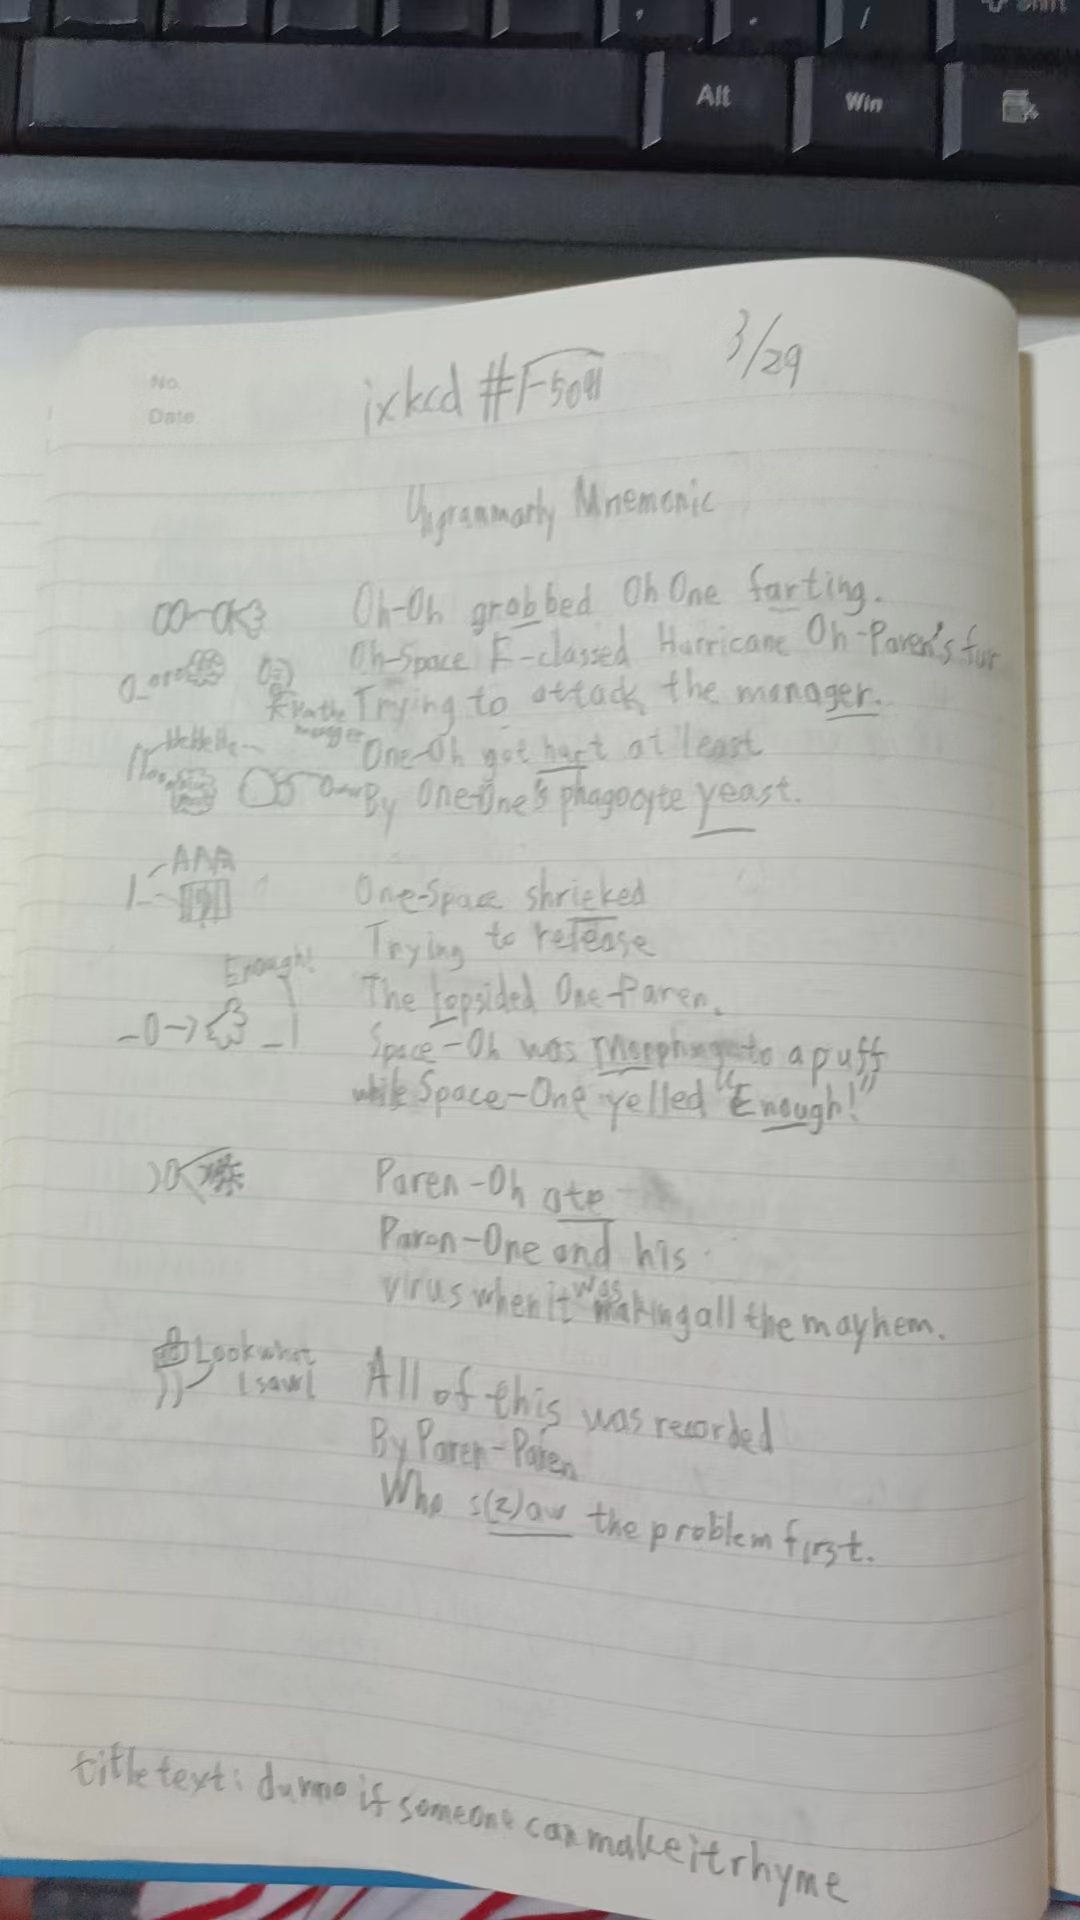 , . / Shift
Alt Win
No.
Date
3/29
ixkcd #√-5041
Ungrammarly Mnemonic
Oh-Oh grabbed Oh One farting.
Oh-Space F-classed Hurricane Oh-Paren's fur
Trying to attack the manager.
One-Oh got hurt at least
HeHeHe
By One-One's phagocyte yeast.
AAA
One-Space shrieked
Trying to release
Enough!
The lopsided One-Paren.
Space-Oh was morphing to a puff
while Space-One yelled "Enough!"
Paren-Oh ate
Paren-One and his
virus when it was making all the mayhem.
Look what
I saw!
All of this was recorded
By Paren-Paren
Who s(z)aw the problem first.
title text: dunno if someone can make it rhyme